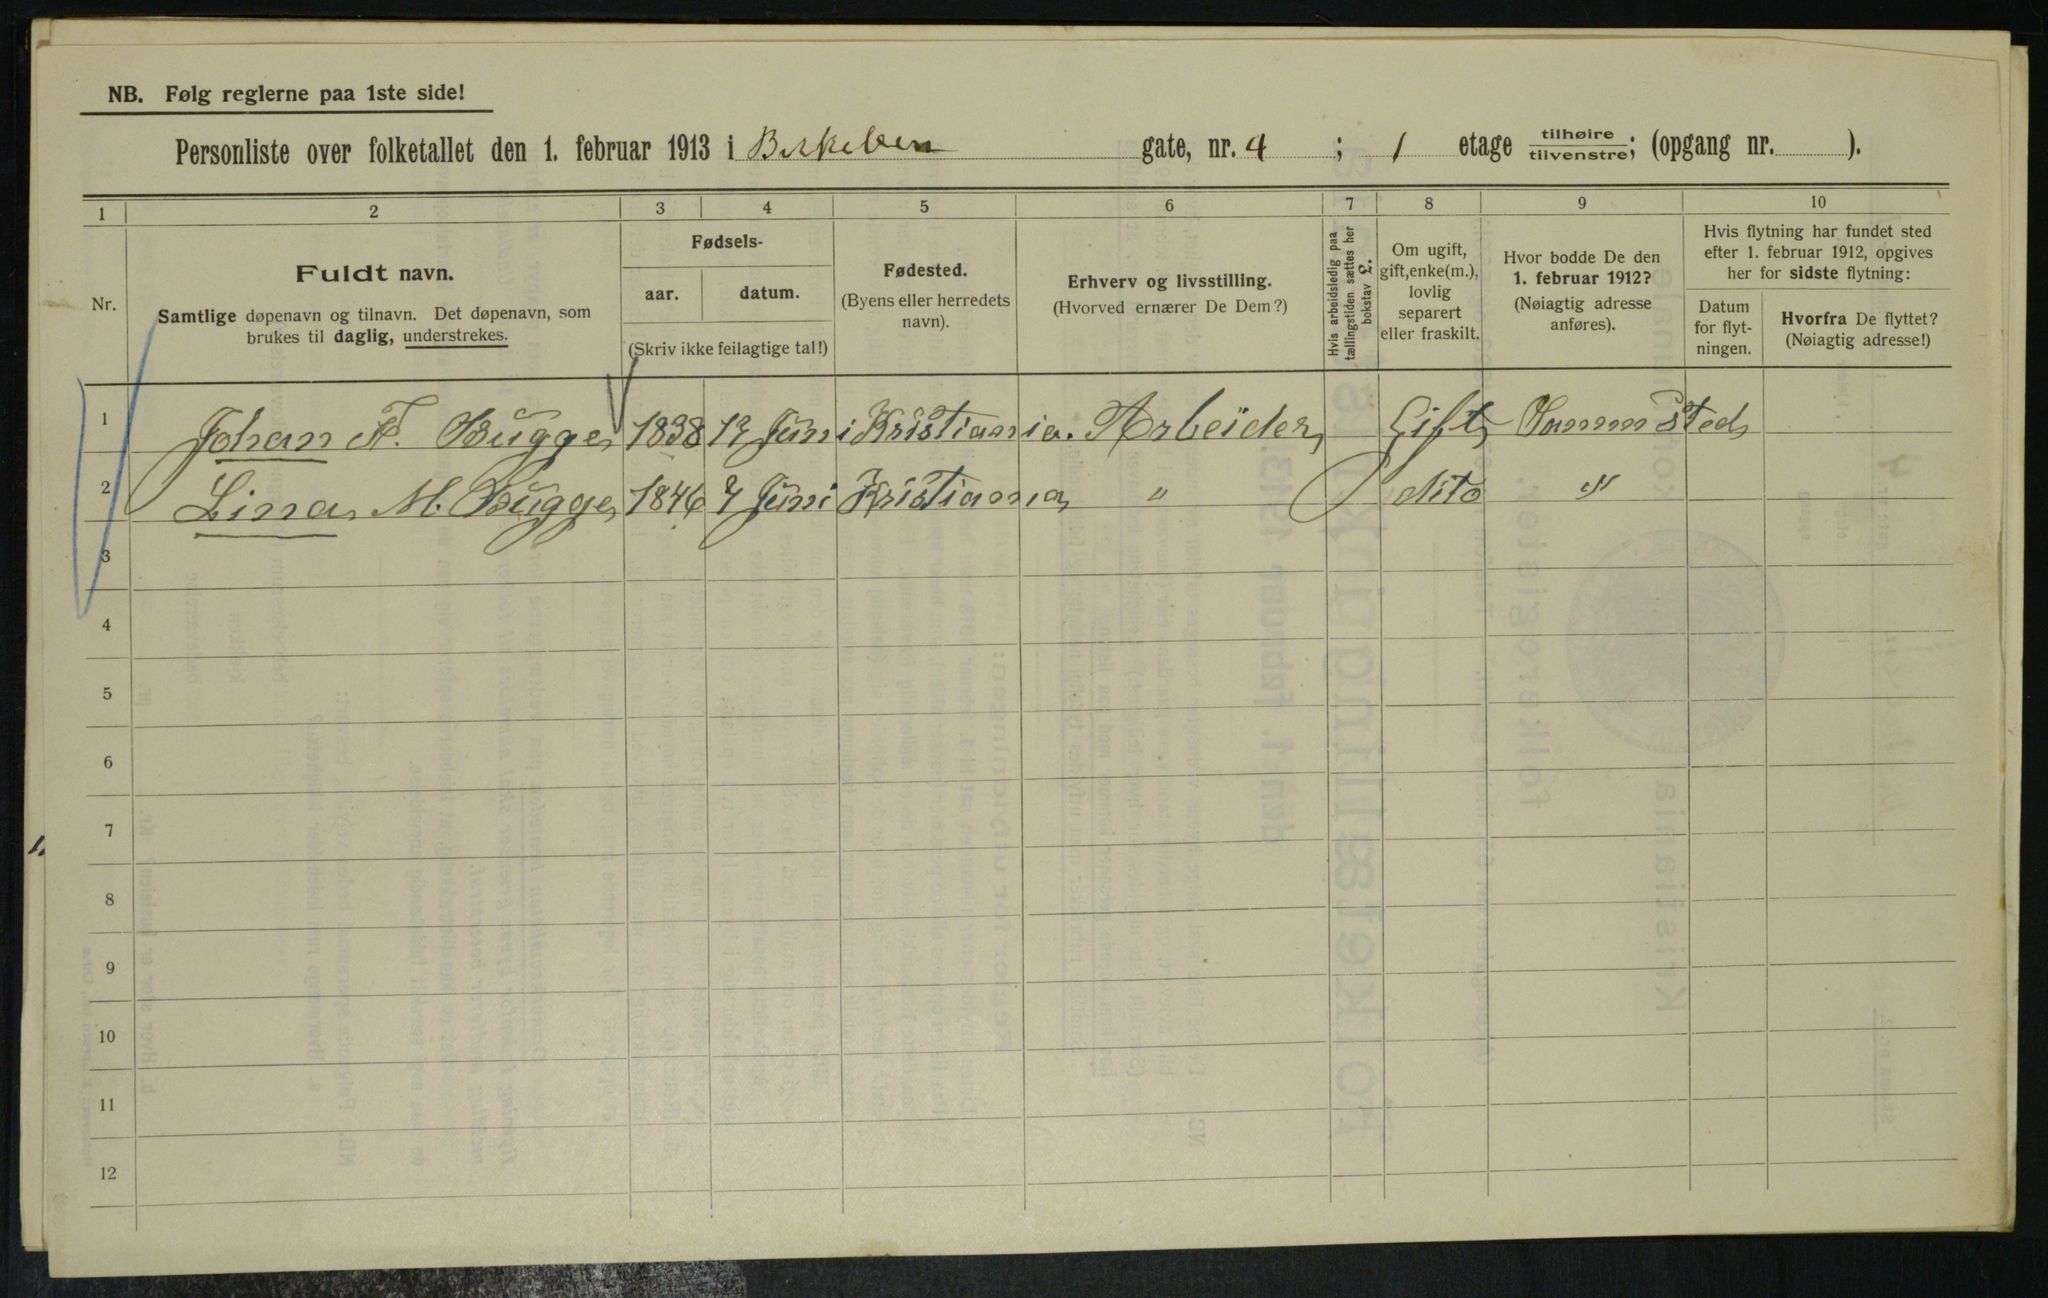 NB. Følg reglerne paa 1ste side!
Personliste over folketallet den 1. februar 1913 i Birkeben gate, nr. 4 ; 1 etage tilhøire / tilvenstre; (opgang nr. ).
1 2 3 4 5 6 7 8 9 10
Nr.
Fuldt navn.
Samtlige døpenavn og tilnavn. Det døpenavn, som
brukes til daglig, understrekes.
Fødsels-
aar. datum.
(Skriv ikke feilagtige tal!)
Fødested.
(Byens eller herredets
navn).
Erhverv og livsstilling.
(Hvorved ernærer De Dem?)
Hvis arbeidsledig paa
tællingstiden sættes her
bokstav L.
Om ugift,
gift, enke(m.),
lovlig
separert
eller fraskilt.
Hvor bodde De den
1. februar 1912?
(Nøiagtig adresse
anføres).
Hvis flytning har fundet sted
efter 1. februar 1912, opgives
her for sidste flytning:
Datum
for flyt-
ningen.
Hvorfra De flyttet?
(Nøiagtig adresse!)
1 Johan F. Bugge 1838 12 Juni Kristiania. Arbeider Gift Samm Sted
2 Lina M. Bugge 1846 7 Juni Kristiania " dito "
3
4
5
6
7
8
9
10
11
12